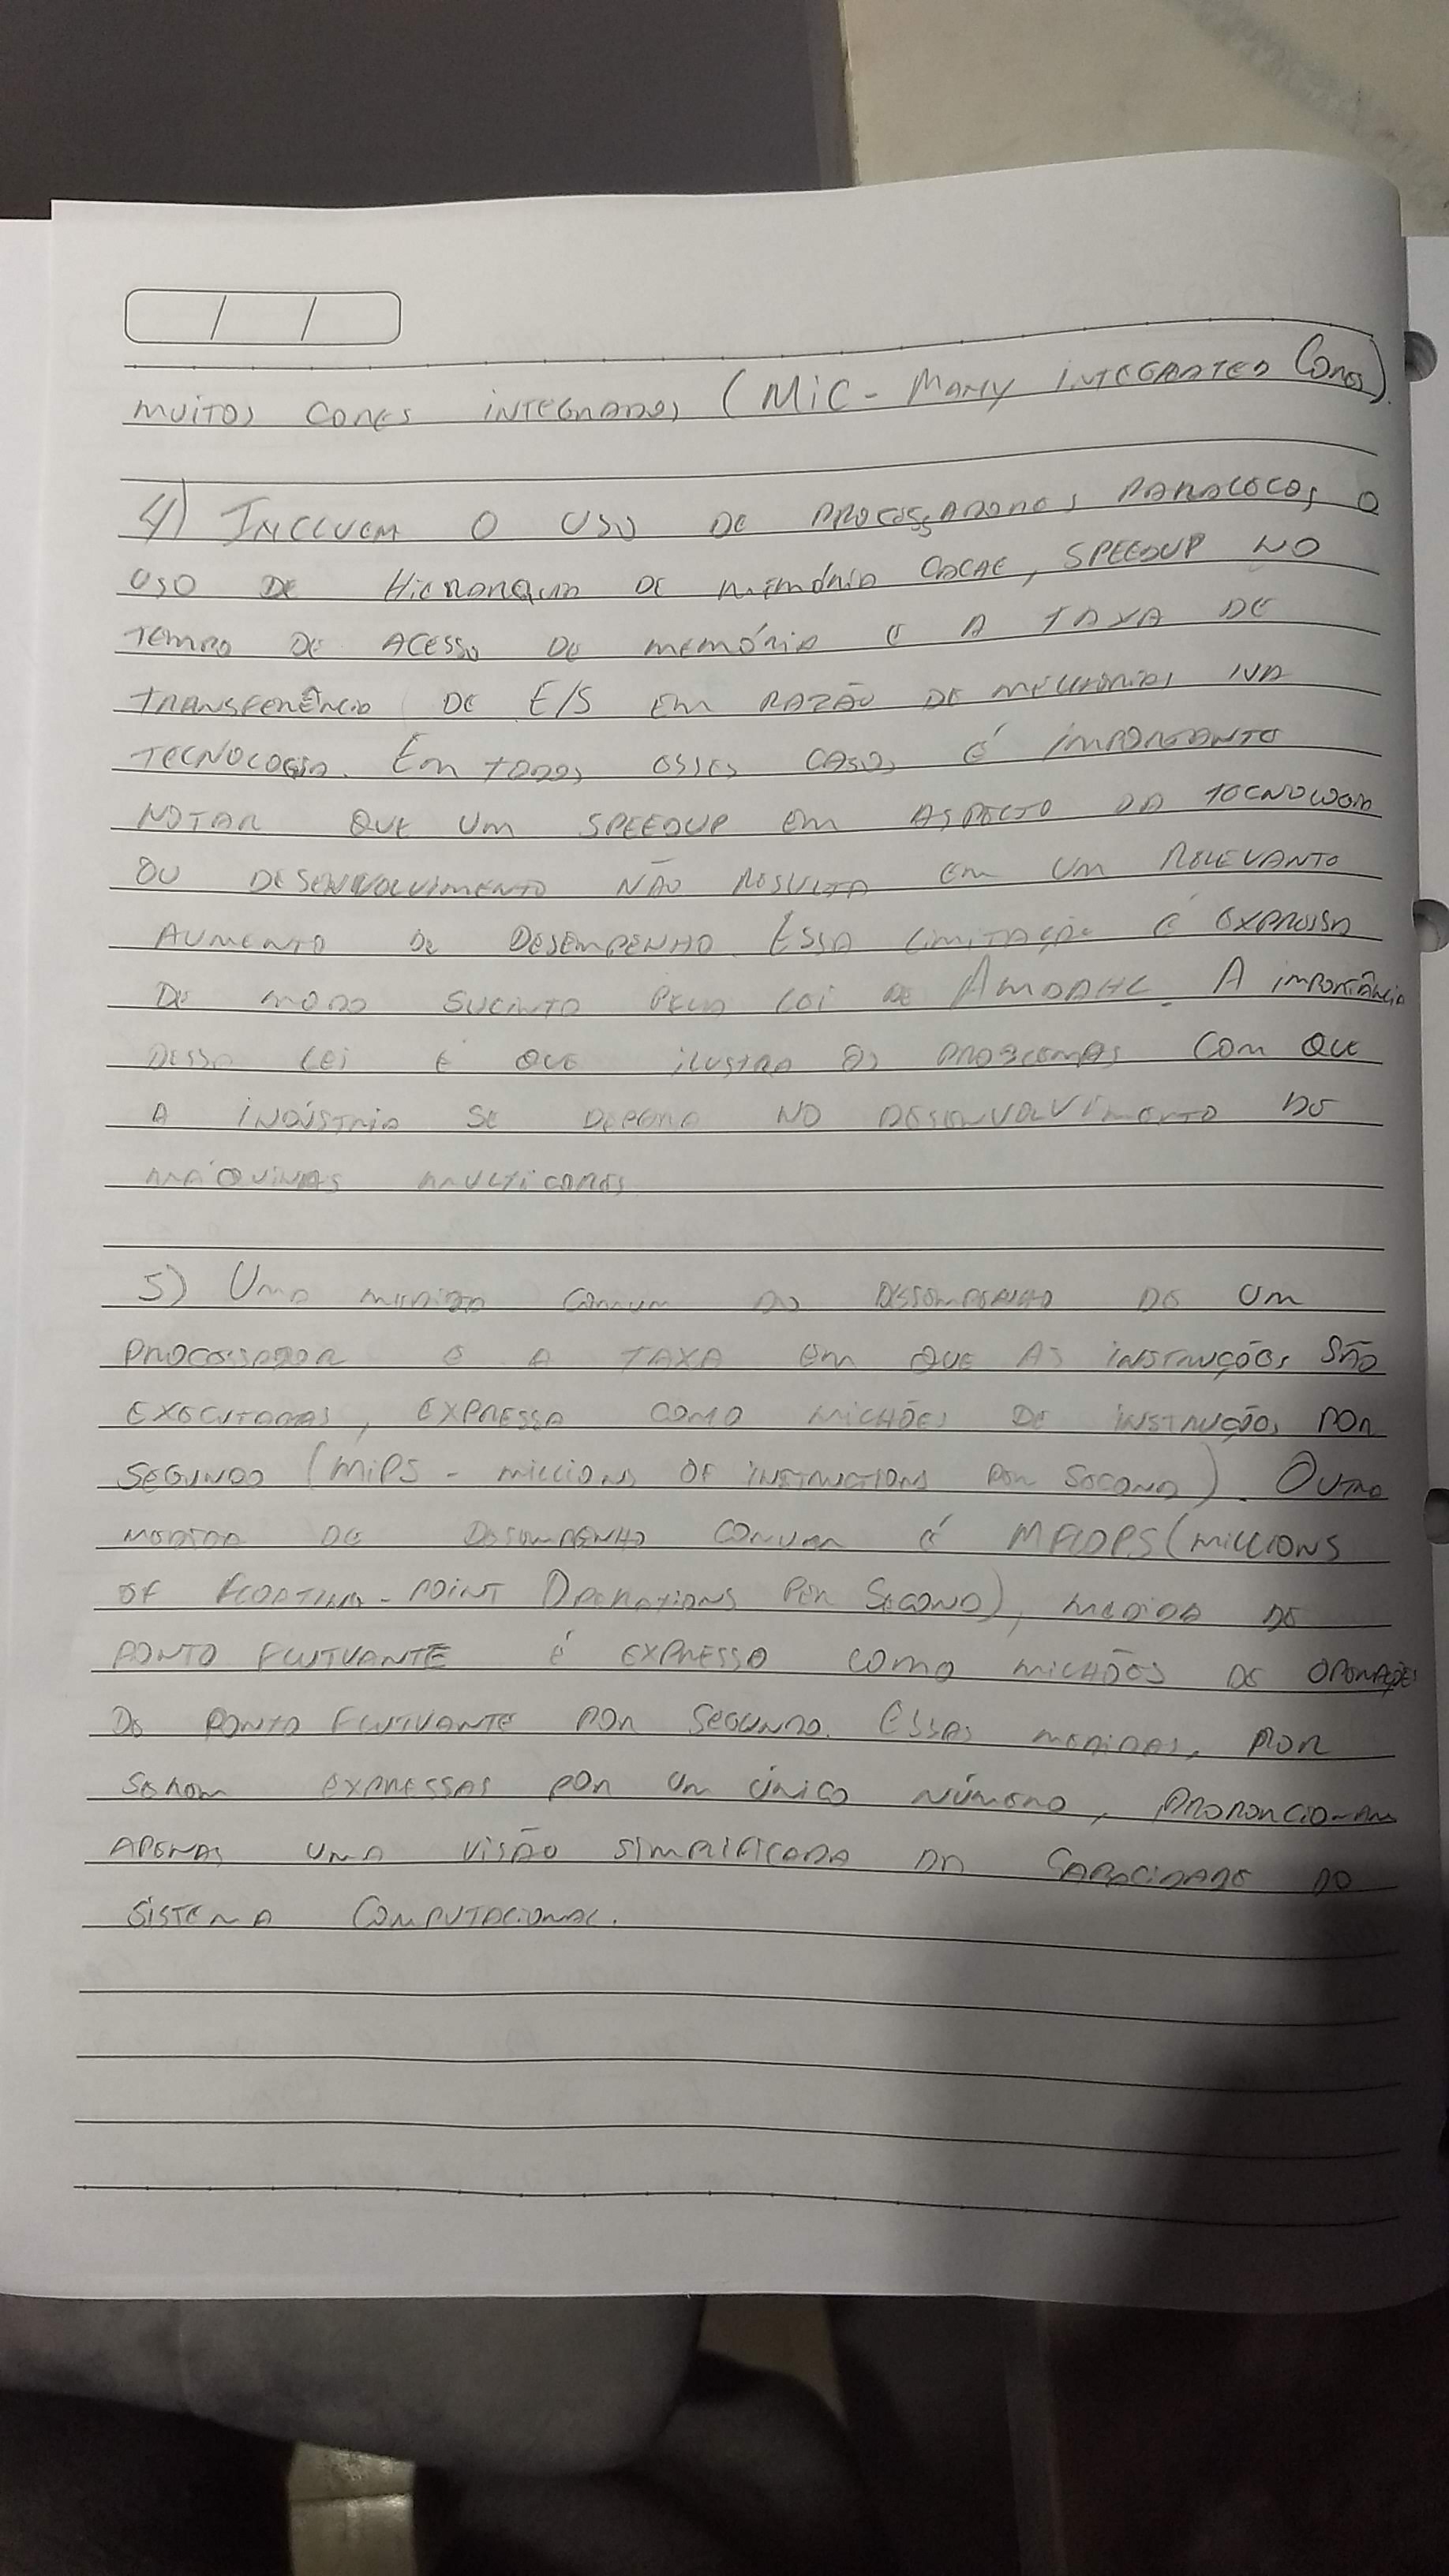 MUITOS CORES INTEGRADOS (MIC - MANY INTEGRATED CORES).
4) INCLUEM O USO DE PROCESSADORES PARALELOS, O
USO DE HIERARQUIA DE MEMÓRIA CACHE, SPEEDUP NO
TEMPO DE ACESSO DE MEMÓRIA E A TAXA DE
TRANSFERÊNCIA DE E/S EM RAZÃO DE MELHORIAS NA
TECNOLOGIA. EM TODOS ESSES CASOS É IMPORTANTE
NOTAR QUE UM SPEEDUP EM ASPECTO DA TECNOLOGIA
OU DESENVOLVIMENTO NÃO RESULTA EM UM RELEVANTE
AUMENTO DE DESEMPENHO. ESSA LIMITAÇÃO É EXPRESSA
DE MODO SUCINTO PELA LEI DE AMDAHL. A IMPORTÂNCIA
DESSA LEI É QUE ILUSTRA OS PROBLEMAS COM QUE
A INDÚSTRIA SE DEPARA NO DESENVOLVIMENTO DE
MÁQUINAS MULTICORES
5) UMA MEDIDA COMUM DO DESEMPENHO DE UM
PROCESSADOR É A TAXA EM QUE AS INSTRUÇÕES SÃO
EXECUTADAS, EXPRESSA COMO MILHÕES DE INSTRUÇÕES POR
SEGUNDO (MIPS - MILLIONS OF INSTRUCTIONS PER SECOND). OUTRA
MEDIDA DE DESEMPENHO COMUM É MFLOPS (MILLIONS
OF FLOATING-POINT OPERATIONS PER SECOND), MEDIDA DE
PONTO FLUTUANTE É EXPRESSO COMO MILHÕES DE OPERAÇÕES
DE PONTO FLUTUANTE POR SEGUNDO. ESSAS MEDIDAS, POR
SEREM EXPRESSAS POR UM ÚNICO NÚMERO, PROPORCIONAM
APENAS UMA VISÃO SIMPLIFICADA DA CAPACIDADE DO
SISTEMA COMPUTACIONAL.